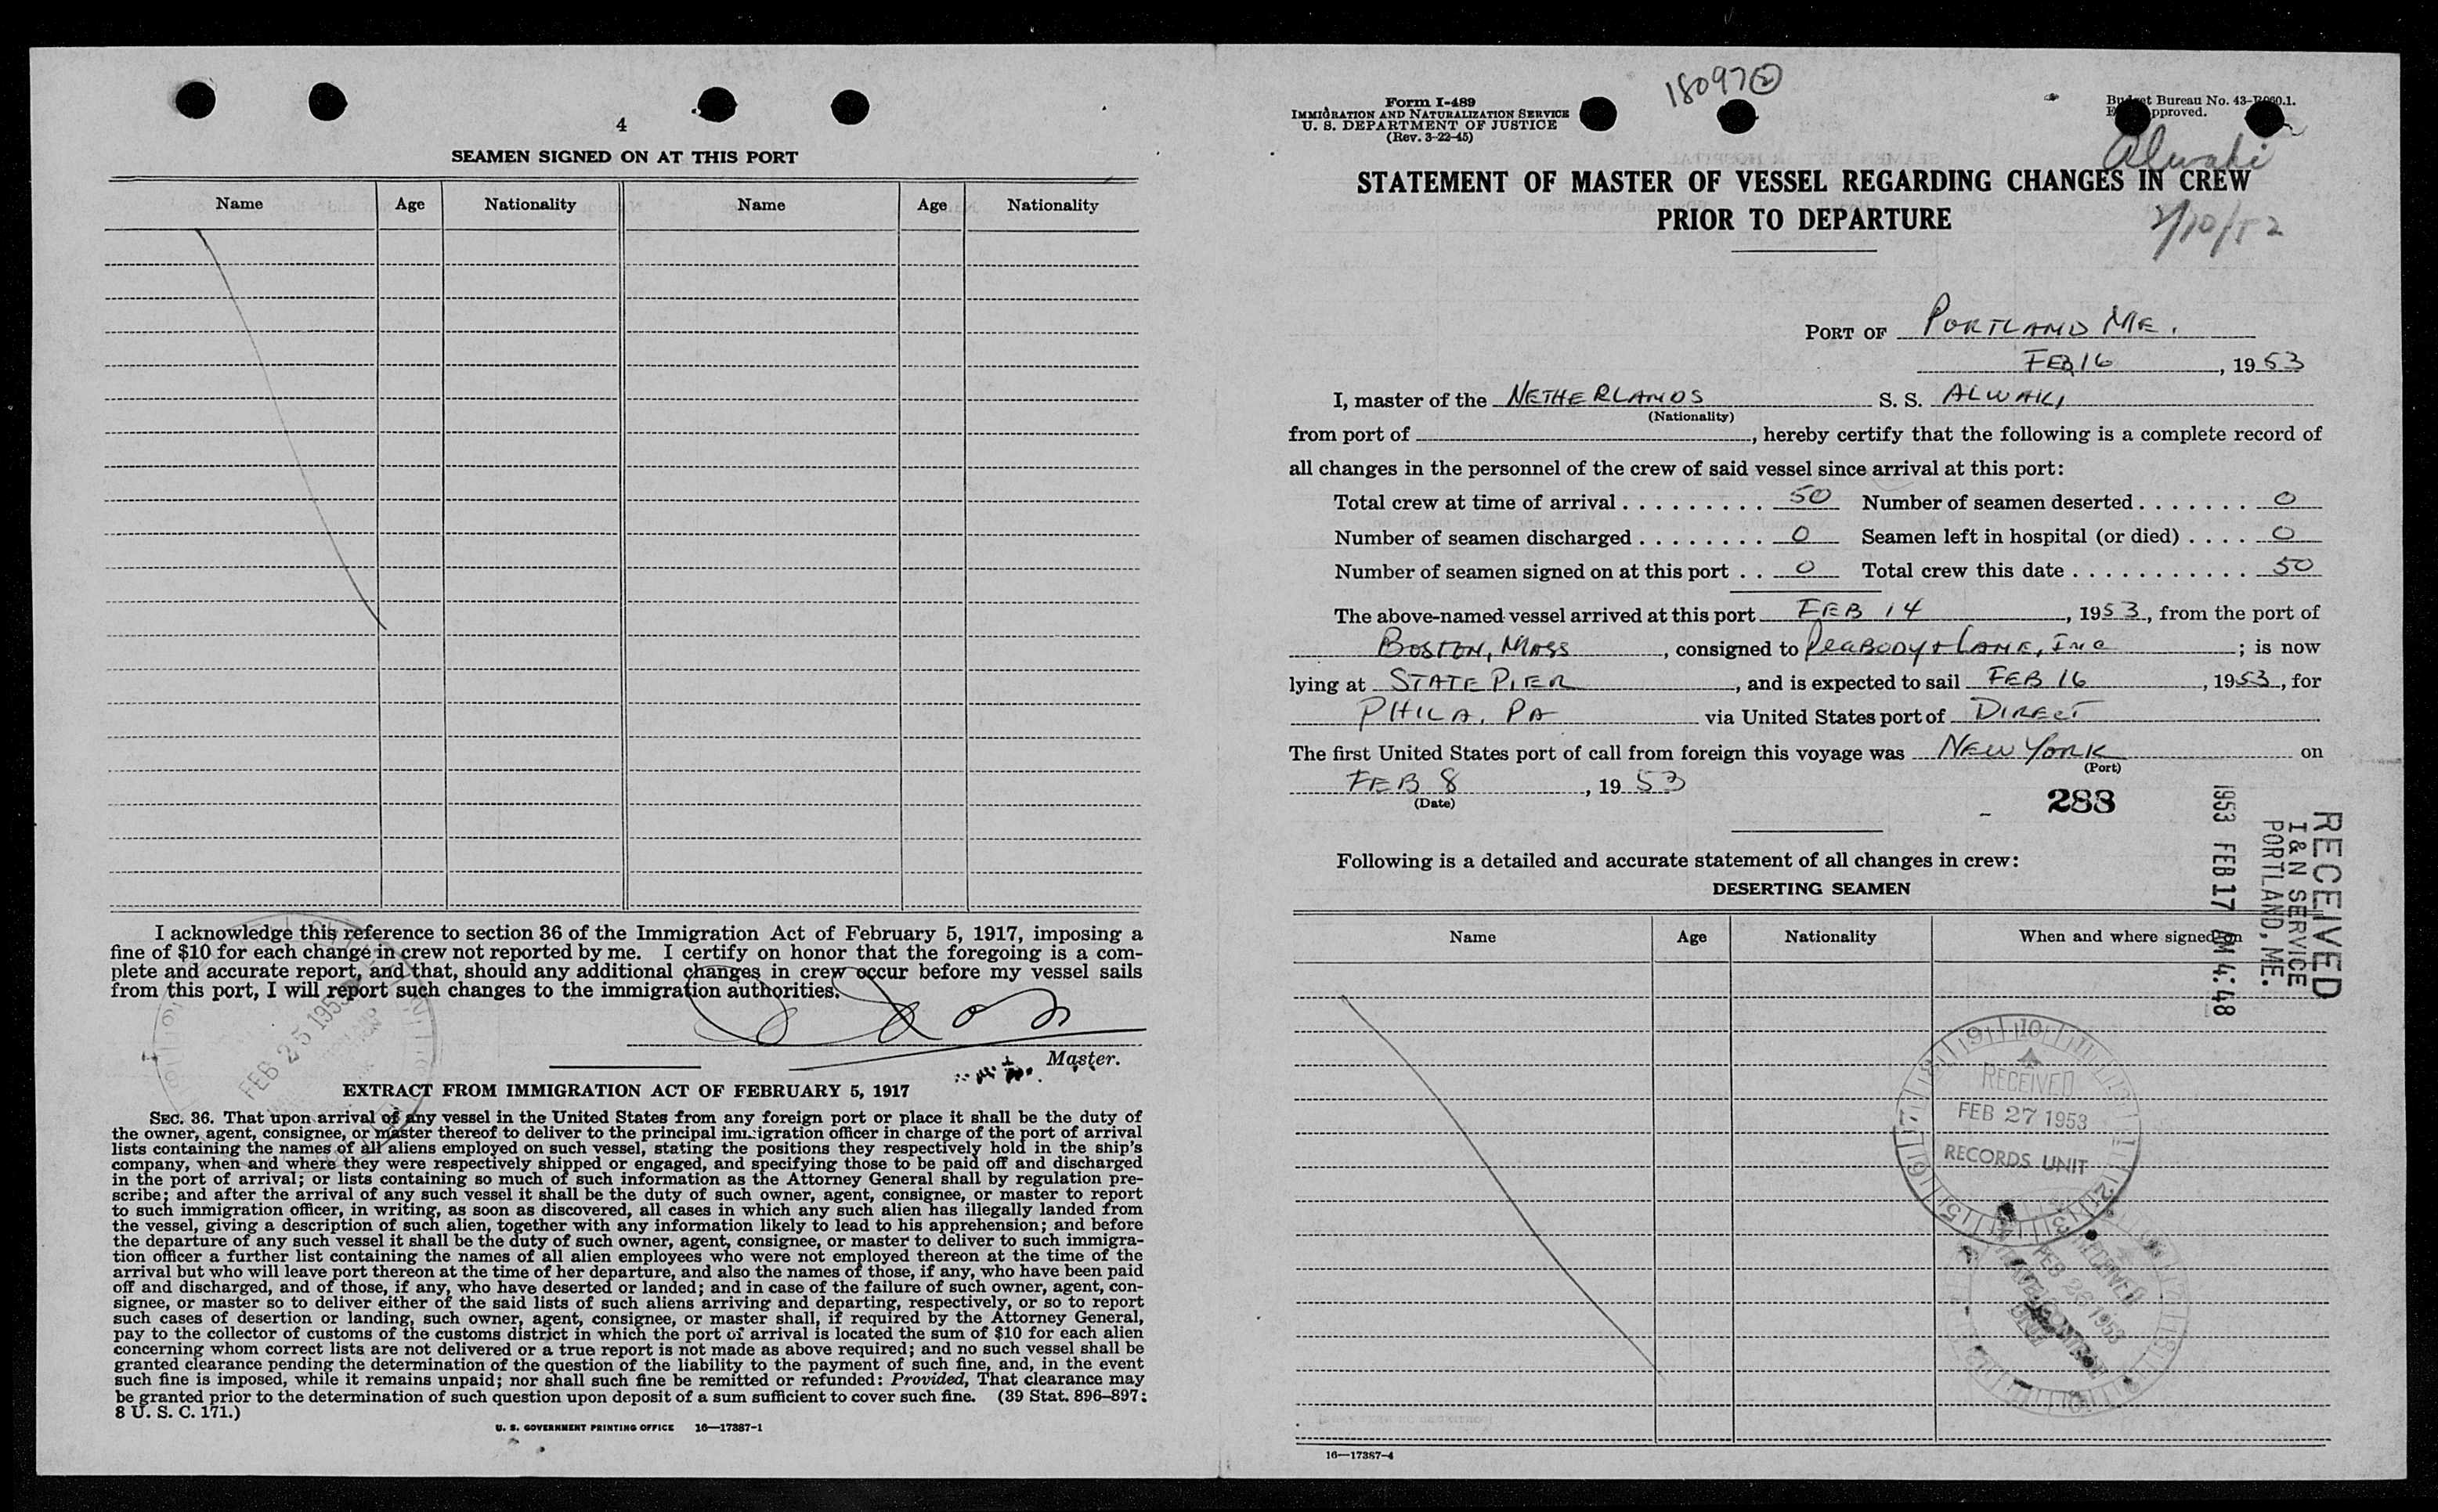 4
SEAMEN SIGNED ON AT THIS PORT
Name Age Nationality Name Age Nationality
I acknowledge this reference to section 36 of the Immigration Act of February 5, 1917, imposing a
fine of $10 for each change in crew not reported by me. I certify on honor that the foregoing is a com-
plete and accurate report, and that, should any additional changes in crew occur before my vessel sails
from this port, I will report such changes to the immigration authorities.
FEB 25 1953
Master.
EXTRACT FROM IMMIGRATION ACT OF FEBRUARY 5, 1917
SEC. 36. That upon arrival of any vessel in the United States from any foreign port or place it shall be the duty of
the owner, agent, consignee, or master thereof to deliver to the principal immigration officer in charge of the port of arrival
lists containing the names of all aliens employed on such vessel, stating the positions they respectively hold in the ship's
company, when and where they were respectively shipped or engaged, and specifying those to be paid off and discharged
in the port of arrival; or lists containing so much of such information as the Attorney General shall by regulation pre-
scribe; and after the arrival of any such vessel it shall be the duty of such owner, agent, consignee, or master to report
to such immigration officer, in writing, as soon as discovered, all cases in which any such alien has illegally landed from
the vessel, giving a description of such alien, together with any information likely to lead to his apprehension; and before
the departure of any such vessel it shall be the duty of such owner, agent, consignee, or master to deliver to such immigra-
tion officer a further list containing the names of all alien employees who were not employed thereon at the time of the
arrival but who will leave port thereon at the time of her departure, and also the names of those, if any, who have been paid
off and discharged, and of those, if any, who have deserted or landed; and in case of the failure of such owner, agent, con-
signee, or master so to deliver either of the said lists of such aliens arriving and departing, respectively, or so to report
such cases of desertion or landing, such owner, agent, consignee, or master shall, if required by the Attorney General,
pay to the collector of customs of the customs district in which the port of arrival is located the sum of $10 for each alien
concerning whom correct lists are not delivered or a true report is not made as above required; and no such vessel shall be
granted clearance pending the determination of the question of the liability to the payment of such fine, and, in the event
such fine is imposed, while it remains unpaid; nor shall such fine be remitted or refunded: Provided, That clearance may
be granted prior to the determination of such question upon deposit of a sum sufficient to cover such fine. (39 Stat. 896–897;
8 U. S. C. 171.)
U. S. GOVERNMENT PRINTING OFFICE 16—17387-1
18097 2
Form I-489
IMMIGRATION AND NATURALIZATION SERVICE
U. S. DEPARTMENT OF JUSTICE
(Rev. 3-22-45)
Budget Bureau No. 43-R060.1.
Approved.
Alwaki
2/10/52
STATEMENT OF MASTER OF VESSEL REGARDING CHANGES IN CREW
PRIOR TO DEPARTURE
PORT OF PORTLAND ME.
FEB 16, 1953
I, master of the NETHERLANDS S. S. ALWAKI
(Nationality)
from port of , hereby certify that the following is a complete record of
all changes in the personnel of the crew of said vessel since arrival at this port:
Total crew at time of arrival . . . . . . . . . 50 Number of seamen deserted . . . . . . . 0
Number of seamen discharged . . . . . . . . 0 Seamen left in hospital (or died) . . . . 0
Number of seamen signed on at this port . . 0 Total crew this date . . . . . . . . . . . . 50
The above-named vessel arrived at this port FEB 14, 1953, from the port of
BOSTON, MASS, consigned to PEABODY + LANE, INC; is now
lying at STATE PIER, and is expected to sail FEB 16, 1953, for
PHILA. PA via United States port of DIRECT
The first United States port of call from foreign this voyage was NEW YORK on
(Port)
FEB 8, 1953
(Date)
288
RECEIVED
I & N SERVICE
PORTLAND, ME.
1953 FEB 17 AM 4:48
Following is a detailed and accurate statement of all changes in crew:
DESERTING SEAMEN
Name Age Nationality When and where signed on
RECEIVED
FEB 27 1953
RECORDS UNIT
RECEIVED
FEB 26 1953
16—17387-4